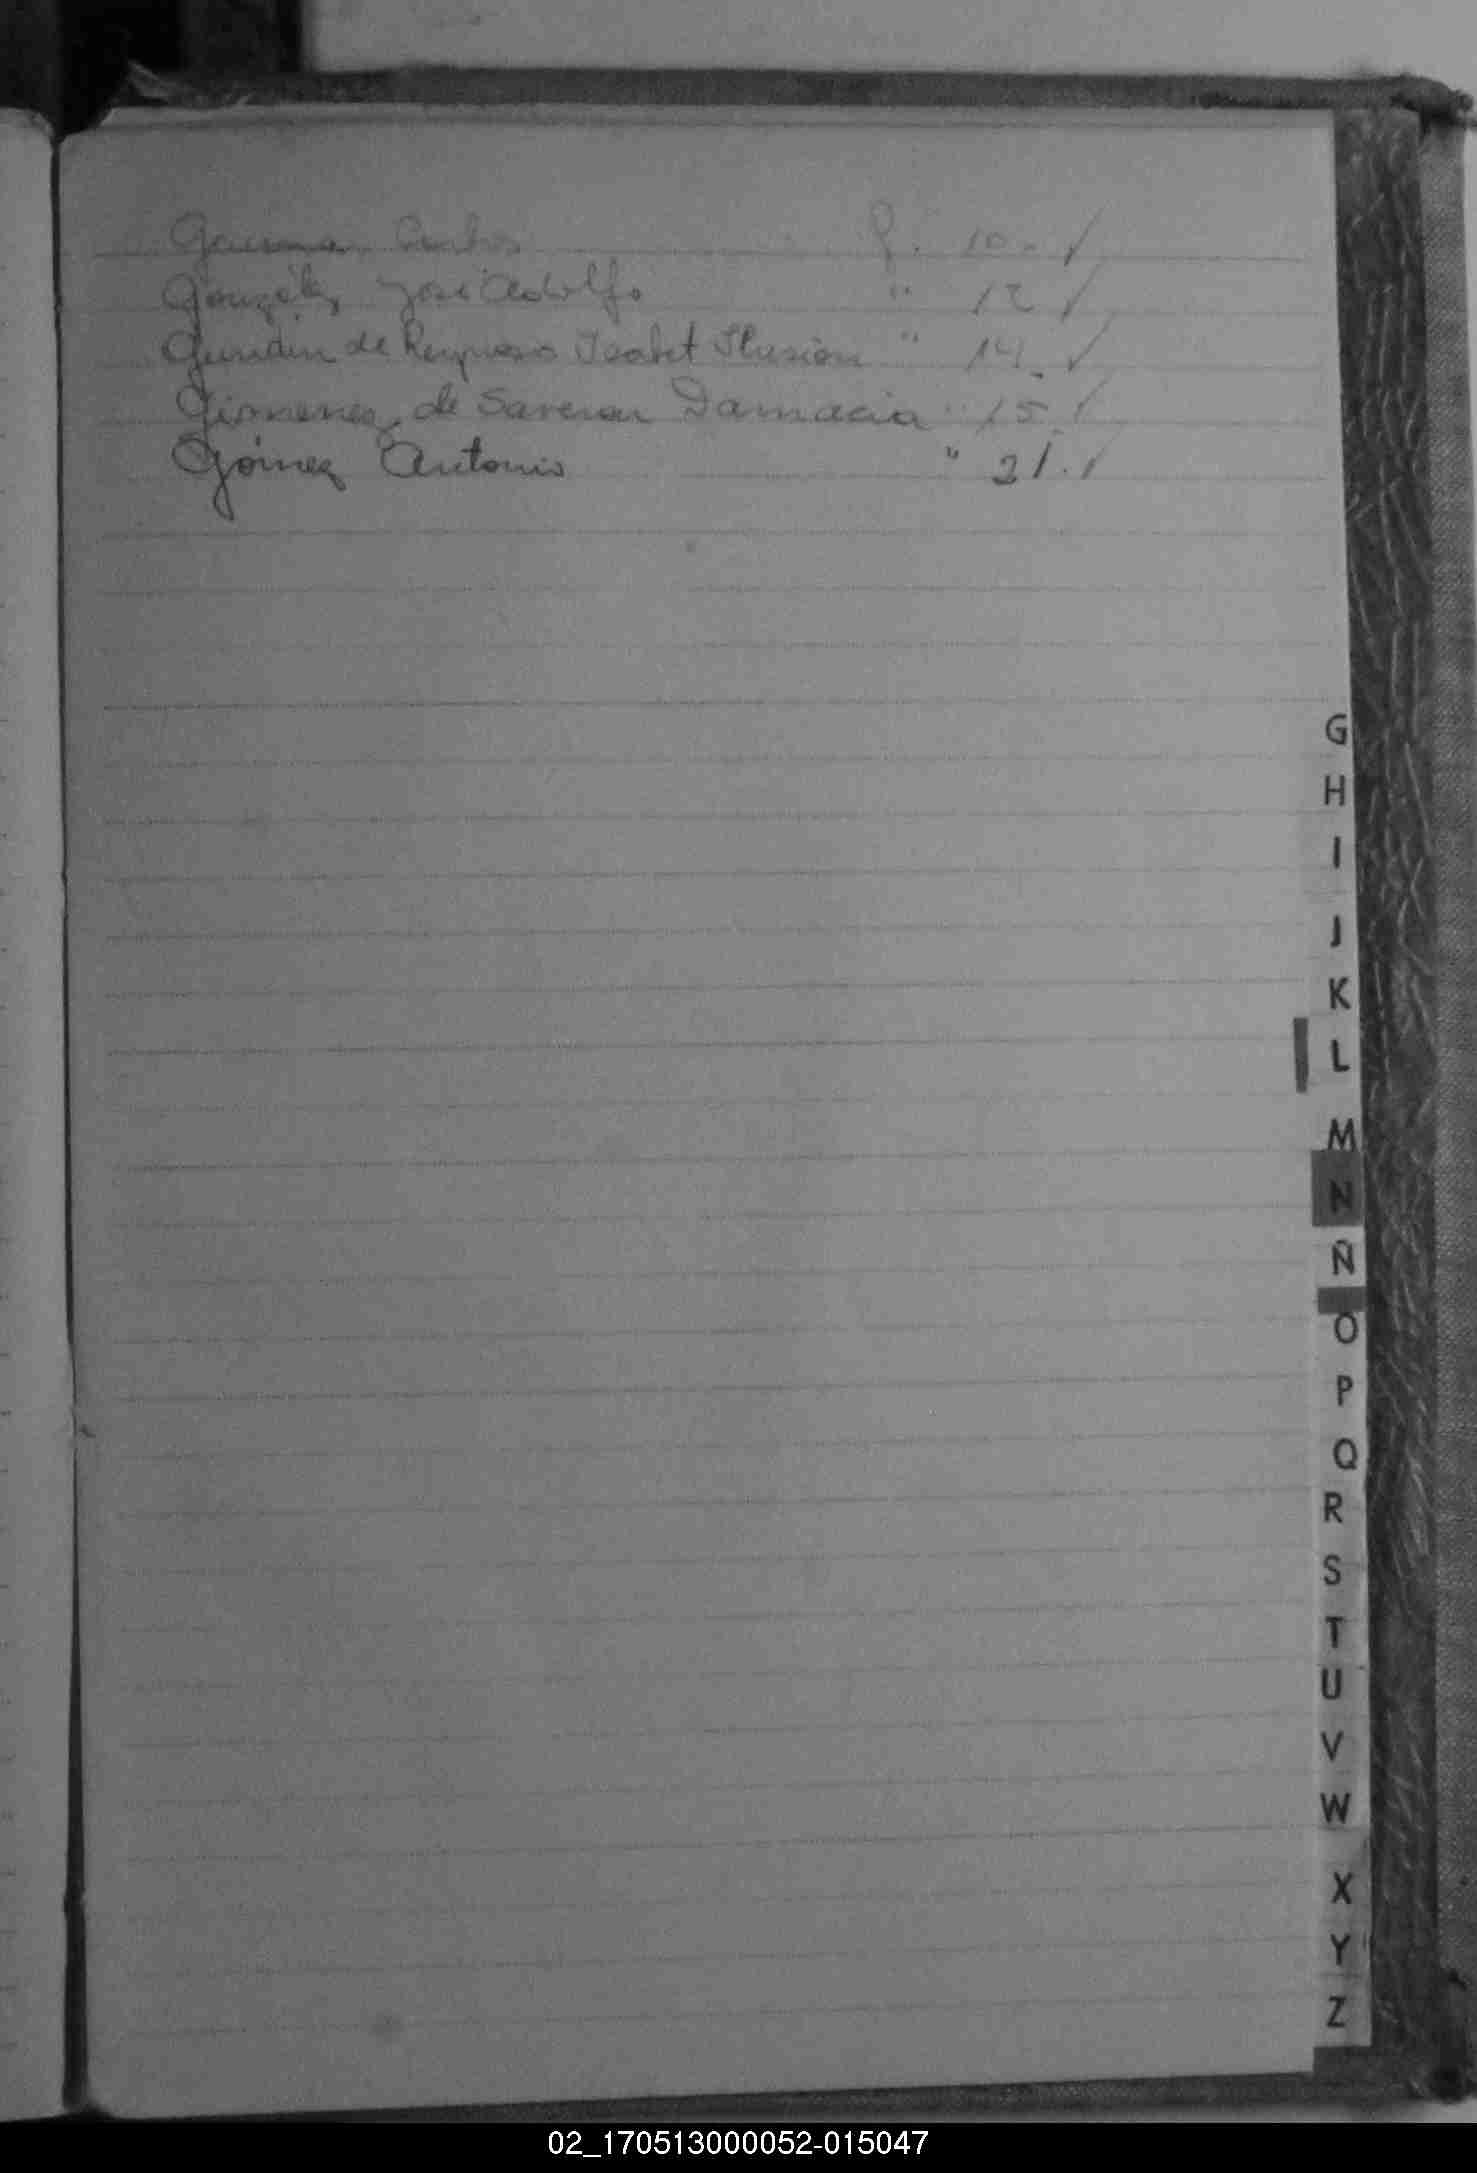 Carlos f. 10. ✓
González José Adolfo " 12 ✓
Gundin de Reynoso Isabel Ilusión " 14. ✓
Gismenez de Damacia " 15. ✓
Gómez Antonio " 21. ✓
G
H
I
J
K
L
M
N
Ñ
O
P
Q
R
S
T
U
V
W
X
Y
Z
02_170513000052-015047